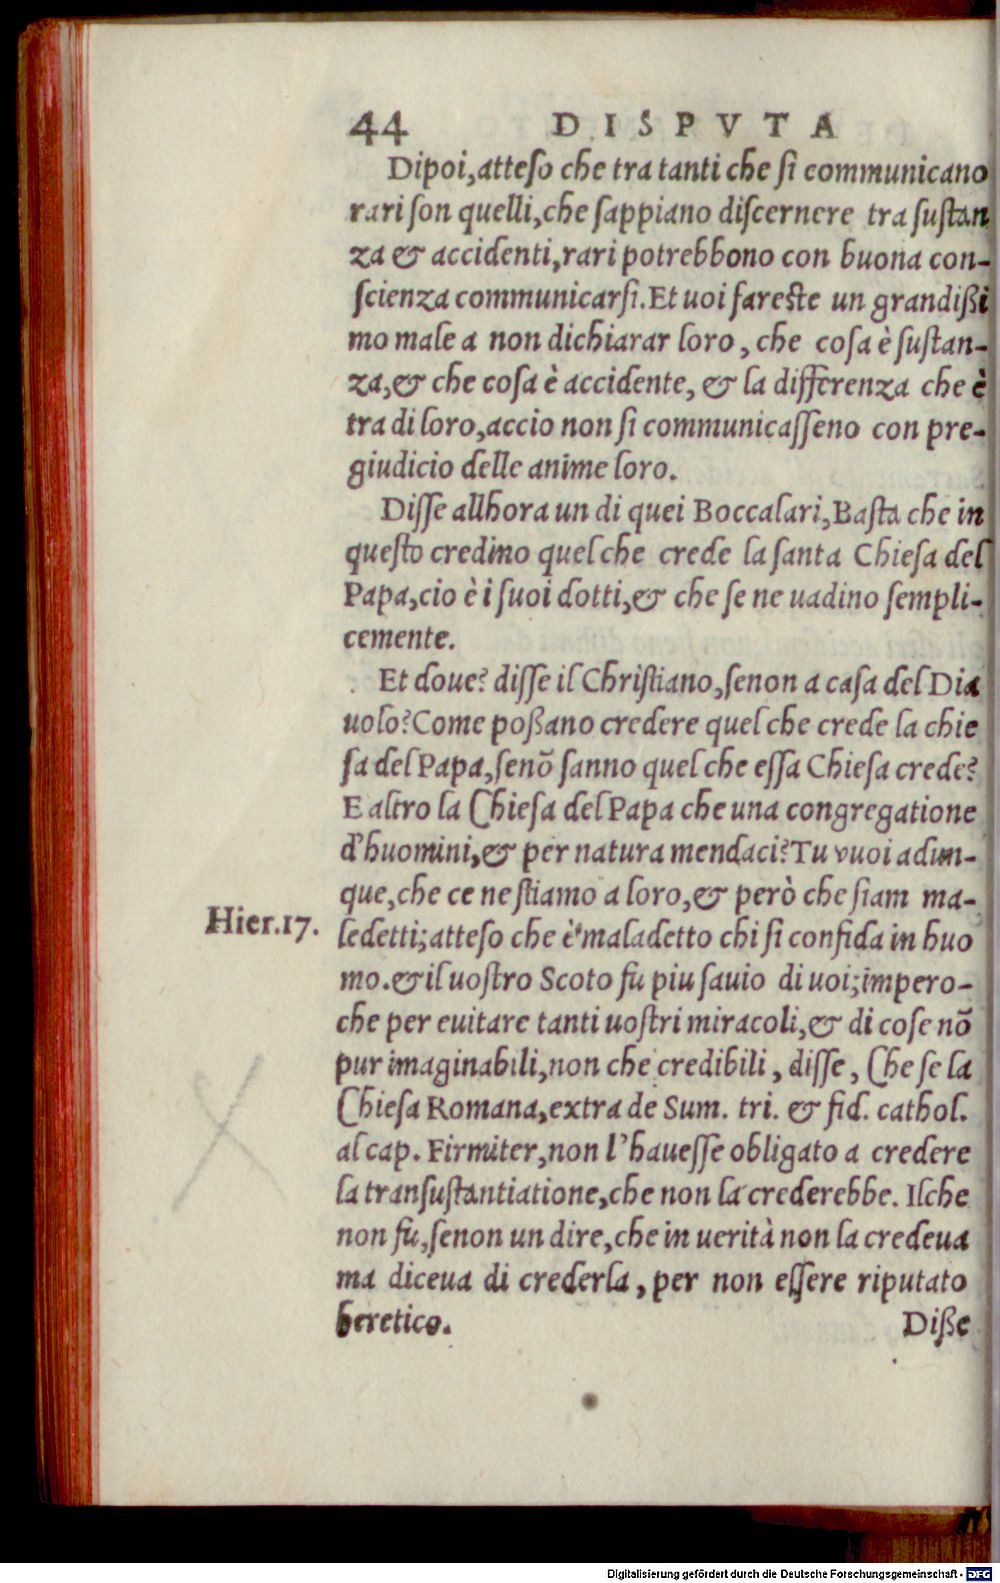 44 DISPVTA
Dipoi, atteſo che tra tanti che ſi communicano
rari ſon quelli, che ſappiano diſcernere tra ſuſtan
za & accidenti, rari potrebbono con buona con-
ſcienza communicarſi. Et uoi fareſte un grandißi
mo male a non dichiarar loro, che coſa è ſuſtan-
za, & che coſa è accidente, & la differenza che è
tra di loro, accio non ſi communicaſſeno con pre-
giudicio delle anime loro.
Diſſe allhora un di quei Boccalari, Baſta che in
queſto credino quel che crede la ſanta Chieſa del
Papa, cio è i ſuoi dotti, & che ſe ne uadino ſempli-
cemente.
Et doue? diſſe il Chriſtiano, ſenon a caſa del Dia
uolo? Come poßano credere quel che crede la chie
ſa del Papa, ſenõ ſanno quel che eſſa Chieſa crede?
E altro la Chieſa del Papa che una congregatione
d'huomini, & per natura mendaci? Tu vuoi adun-
que, che ce ne ſtiamo a loro, & però che ſiam ma-
Hier.17.
ledetti; atteſo che è maladetto chi ſi confida in huo
mo. & il uoſtro Scoto fu piu ſauio di uoi; impero-
che per euitare tanti uoſtri miracoli, & di coſe nõ
pur imaginabili, non che credibili, diſſe, Che ſe la
Chieſa Romana, extra de Sum. tri. & fid. cathol.
al cap. Firmiter, non l'haueſſe obligato a credere
la tranſuſtantiatione, che non la crederebbe. Ilche
non fu, ſenon un dire, che in uerità non la credeua
ma diceua di crederla, per non eſſere riputato
heretico.
Diße
Digitalisierung gefördert durch die Deutsche Forschungsgemeinschaft - DFG